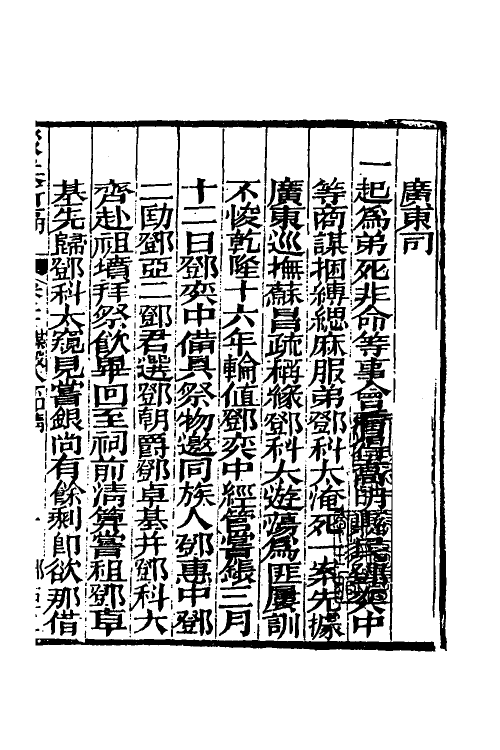 廣東司
一起為弟死非命等事會看得高明縣民鄧奕中
等商謀捆縛緦麻服弟鄧科大淹死一案先據
廣東巡撫蘇昌疏稱緣鄧科大遊蕩為匪屢訓
不悛乾隆十六年輪值鄧奕中經管嘗賬三月
十二日鄧奕中備具祭物邀同族人鄧惠中鄧
二劻鄧亞二鄧君選鄧朝爵鄧卓基幷鄧科大
齊赴祖墳拜祭飲畢回至祠前清算嘗租鄧卓
基先歸鄧科大窺見嘗銀尚有餘剩卽欲那借